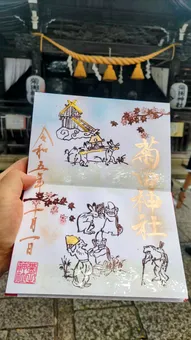 菊田神社
令和二年十月一日